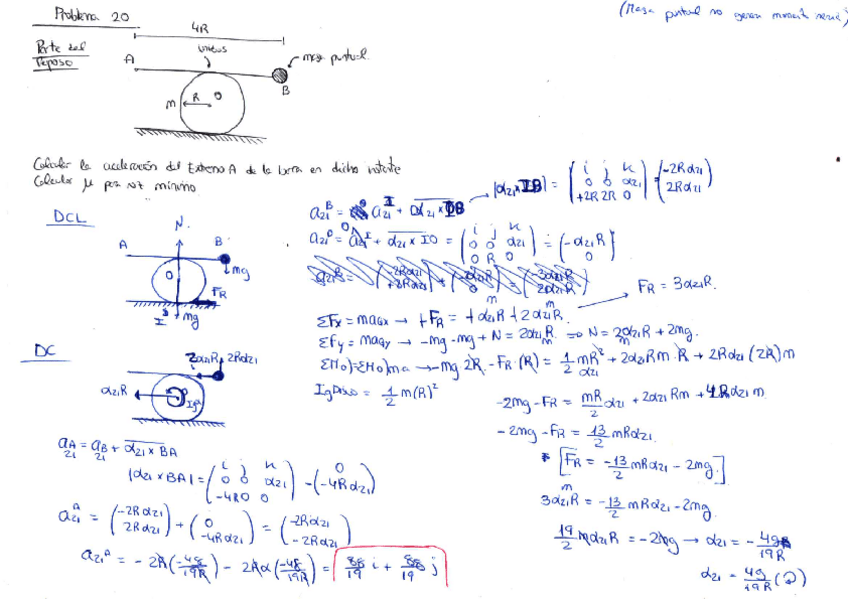 Problema 20
(Masa puntual no genera momento inercia)
4R
Parte del
Reposo
unidos
masa puntual
A
m
R
O
B
Calcular la aceleración del Extremo A de la barra en dicho instante
Calcular μ para no min mínimo
DCL
N
A
B
mg
O
F_R
I
mg
a_21^B = a_21^I + α_21 × IB
|α_21 × IB| = (i j k / 0 0 α_21 / +2R 2R 0) = (-2Rα_21 / 2Rα_21)
a_21^O = a_21^I + α_21 × IO = (i j k / 0 0 α_21 / 0 R 0) = (-α_21R / 0)
F_R = 3α_21R
ΣFx = maGx → +F_R = +α_21R + 2α_21R
ΣFy = maGy → -mg - mg + N = 2α_21R m ⇒ N = 2α_21R m + 2mg.
ΣM)o = ΣMo)ma → -mg 2R - F_R (R) = 1/2 mR² α_21 + 2α_21Rm · R + 2Rα_21 (2R) m
Ig Disco = 1/2 m(R)²
-2mg - F_R = mR/2 α_21 + 2α_21Rm + 4Rα_21 m
-2mg - F_R = 13/2 mRα_21
[F_R = -13/2 mRα_21 - 2mg]
3α_21R m = -13/2 mRα_21 - 2mg
19/2 mα_21R = -2mg → α_21 = -4g/19R
α_21 = 4g/19R (↻)
DC
2α_21R
2Rα_21
α_21R
Igα
a_21^A = a_21^B + α_21 × BA
|α_21 × BA| = (i j k / 0 0 α_21 / -4R 0 0) - (0 / -4Rα_21)
a_21^A = (-2Rα_21 / 2Rα_21) + (0 / -4Rα_21) = (-2Rα_21 / -2Rα_21)
a_21^A = -2R(-4g/19R) - 2Rα(-4g/19R) = 8g/19 i + 8g/19 j